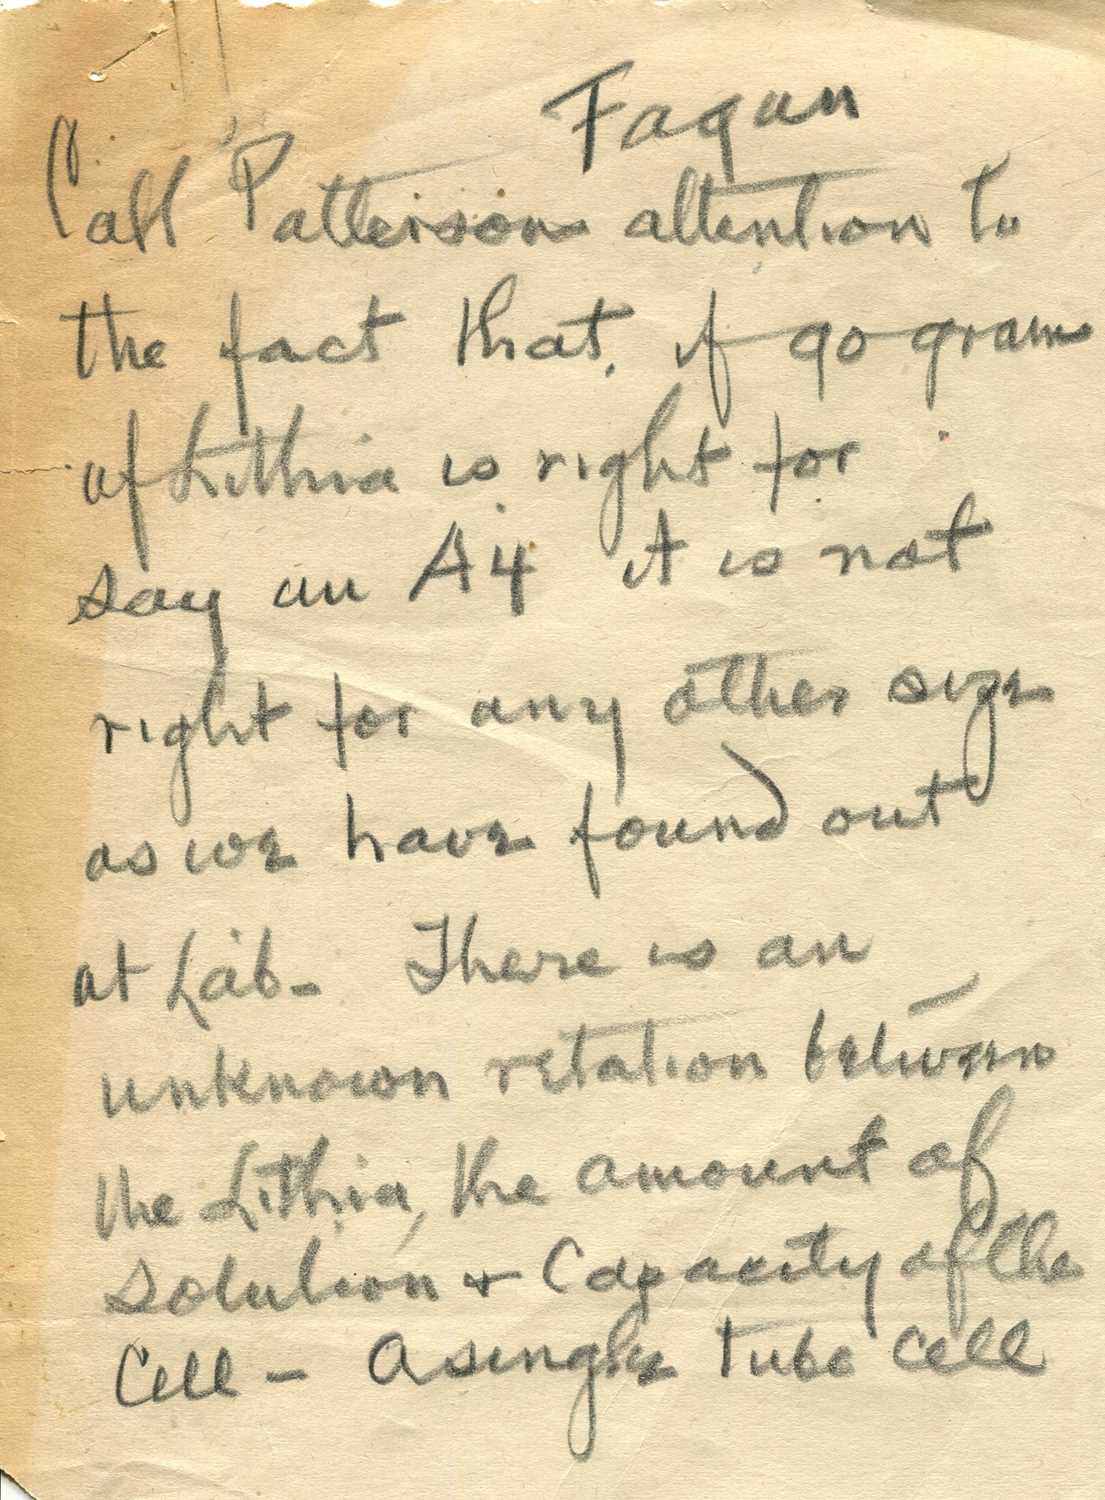 Fagan
Call Patterson attention to
the fact that, if 90 grams
of Lithia is right for
say an A4 it is not
right for any other size
as we have found out
at Lab - There is an
unknown retation between
the Lithia, the amount of
solution & Capacity of the
Cell - A single tube cell